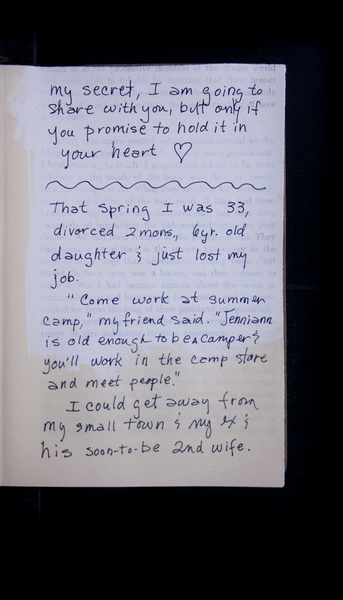 my secret, I am going to
share with you, but only if
you promise to hold it in
your heart ♡
That spring I was 33,
divorced 2 mons., 6yr. old
daughter & just lost my
job.
"Come work at summer
camp," my friend said. "Jenniann
is old enough to be a camper &
you'll work in the camp store
and meet people."
I could get away from
my small town & my ex &
his soon-to-be 2nd wife.